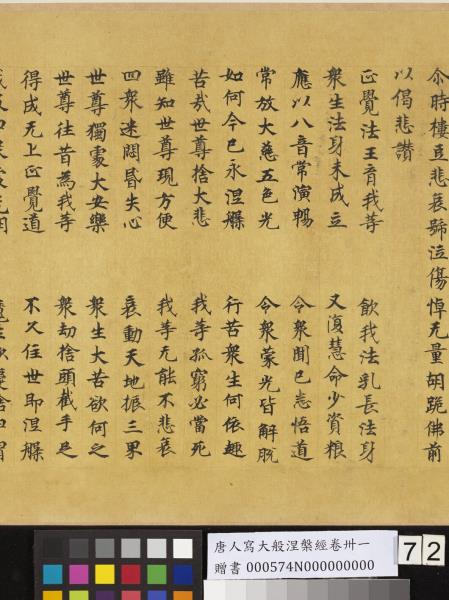 尒時樓豆悲哀號泣傷悼无量胡跪佛前
以偈悲讃
正覺法王育我等 飲我法乳長法身
衆生法身未成立 又復慧命少資粮
應以八音常演暢 令衆聞已悉悟道
常放大慈五色光 令衆蒙光皆解脫
如何今已永涅槃 行苦衆生何依趣
苦哉世尊捨大悲 我等孤窮必當死
雖知世尊現方便 我等无能不悲哀
四衆迷悶昏失心 哀動天地振三界
世尊獨處大安樂 衆生大苦欲何之
世尊往昔為我等 衆劫捨頭截手足
得成无上正覺道 不久住世即涅槃
唐人寫大般涅槃經卷卅一
贈書 000574N000000000
72